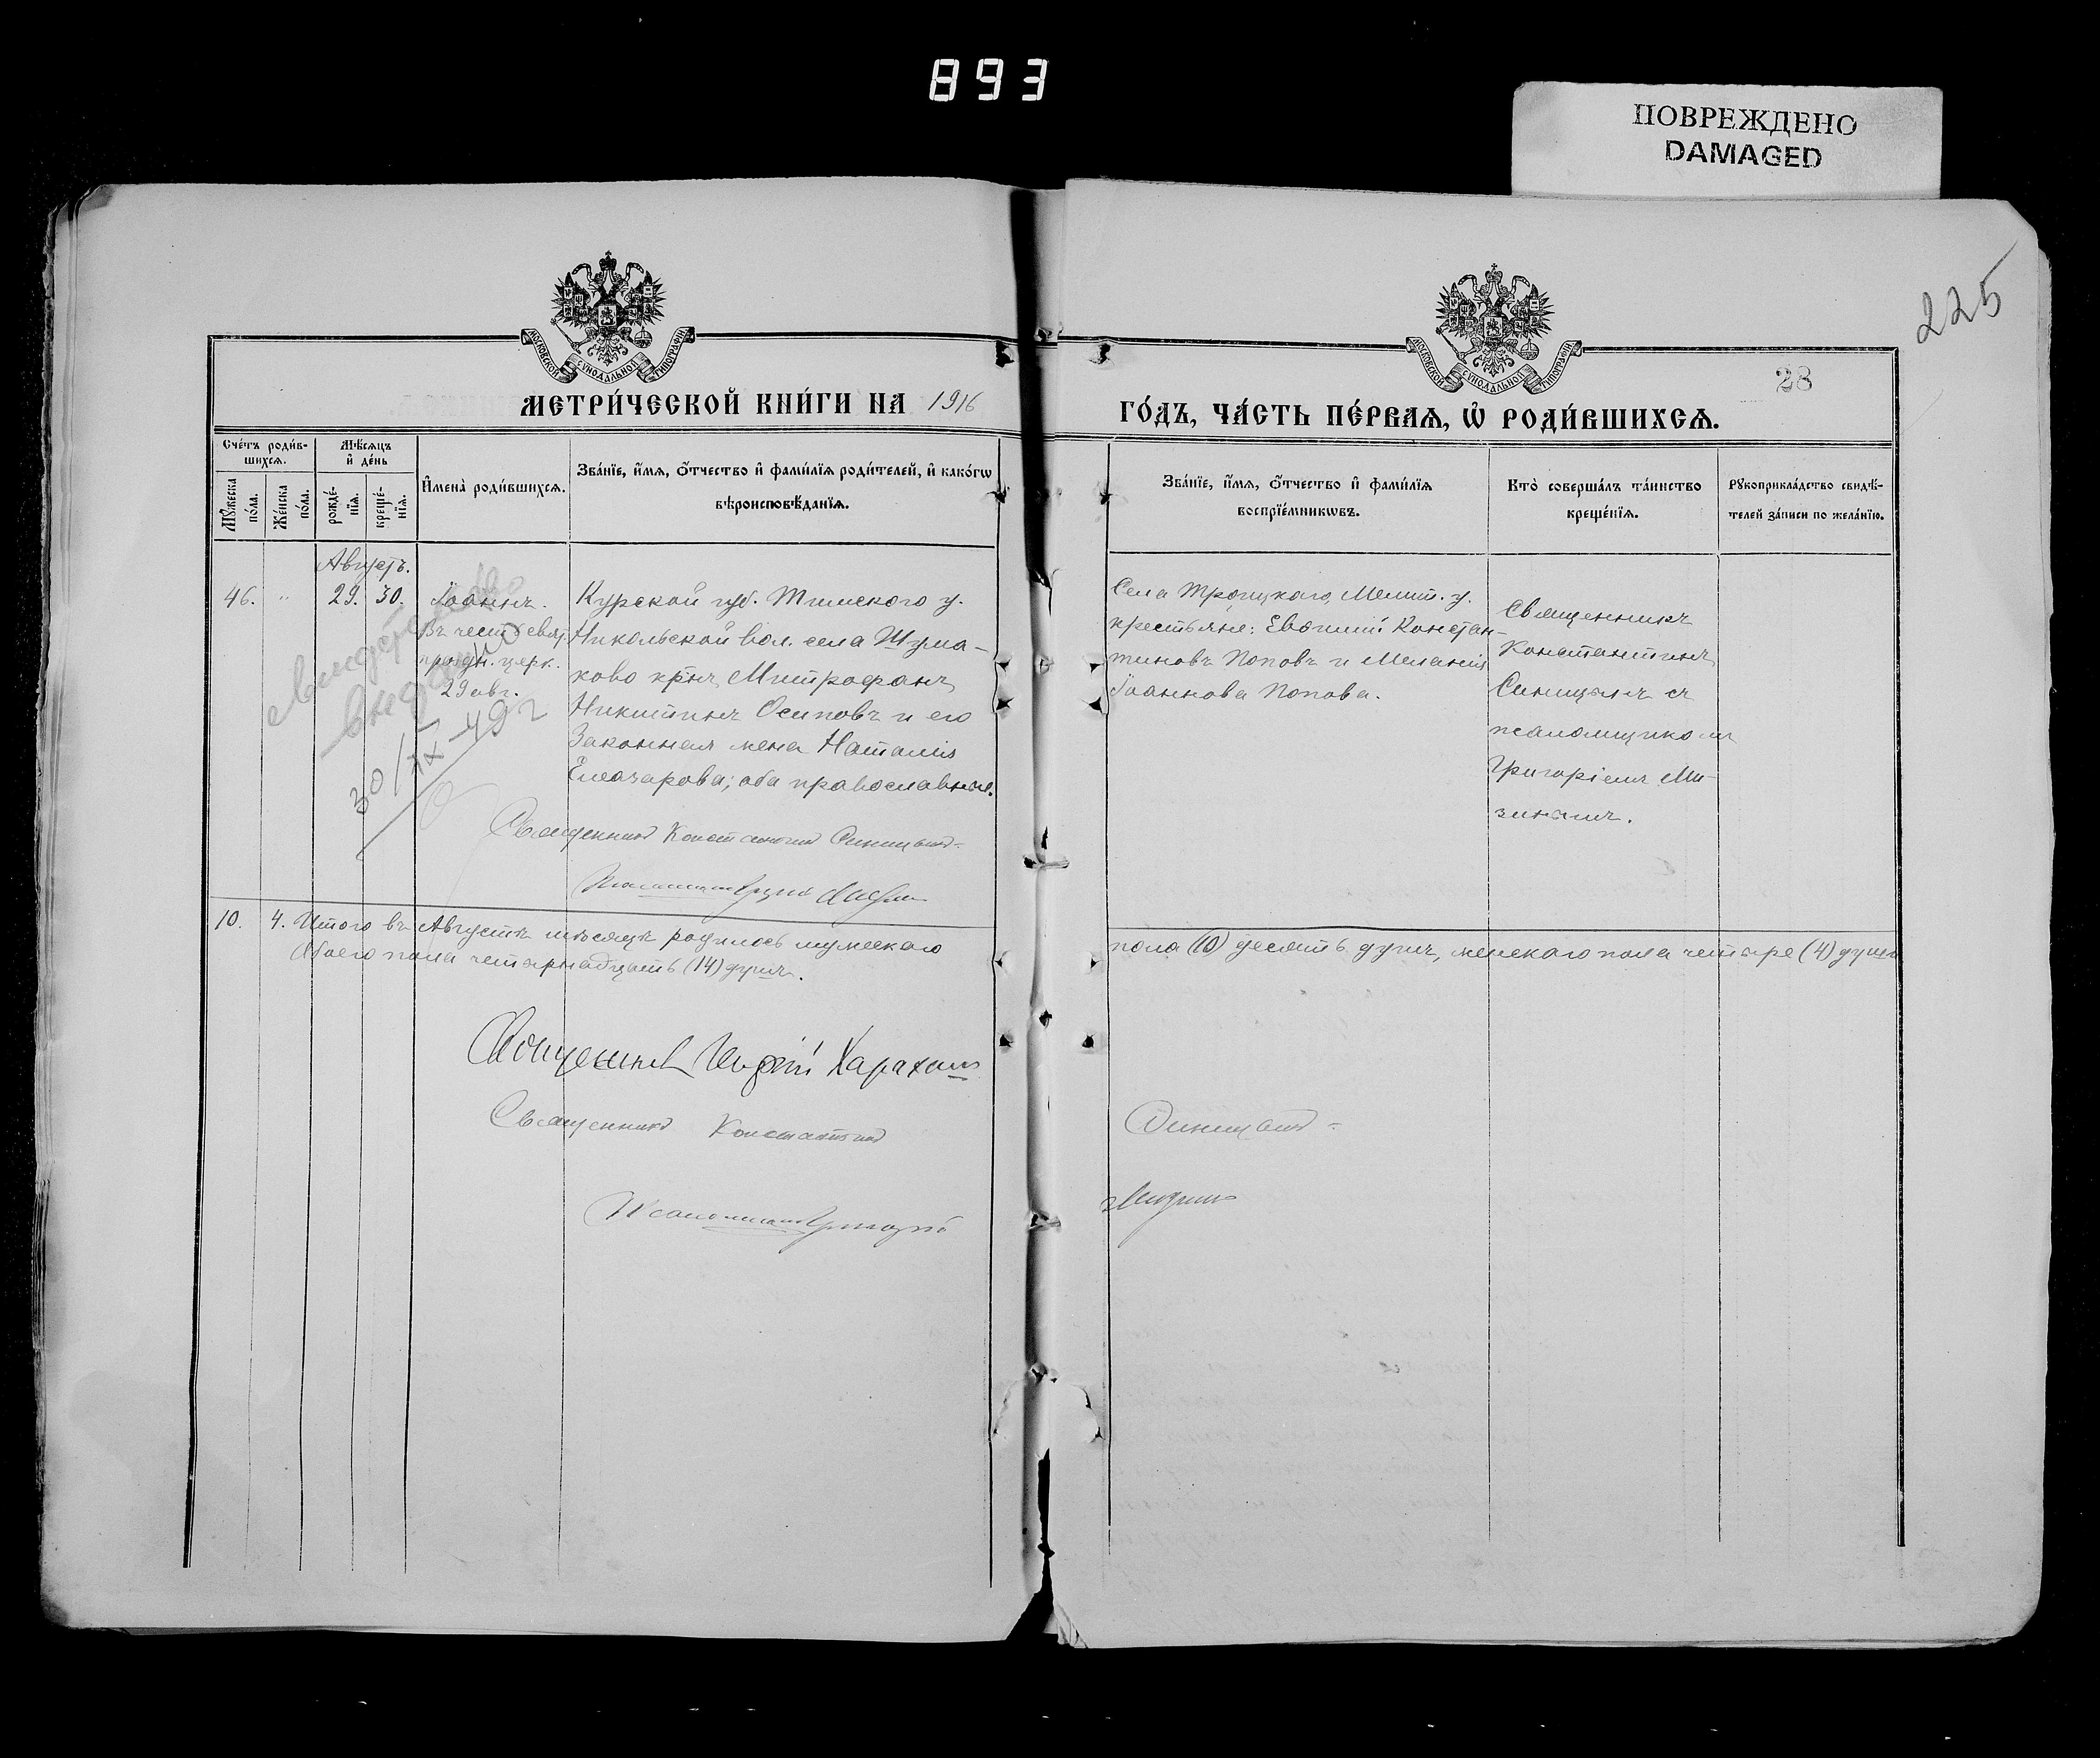 893
ПОВРЕЖДЕНО
DAMAGED
225
МОСКОВСКОЙ СѴНОДАЛЬНОЙ ТИПОГРАФІИ
МОСКОВСКОЙ СѴНОДАЛЬНОЙ ТИПОГРАФІИ
28
МЕТРИ́ЧЕСКОЙ КНИ́ГИ НА 1916
ГО́ДЪ, ЧА́СТЬ ПЕ́РВАѦ, Ѡ҆ РОДИ́ВШИХСѦ.
Сче́тъ роди́в-
шихсѧ.
Мꙋ́жеска
по́ла.
Же́нска
по́ла.
Мѣ́сѧцъ
и҆ де́нь
рожде́-
нїѧ.
креще́-
нїѧ.
И҆мена̀ роди́вшихсѧ.
Зва́нїе, и҆́мѧ, ѻ҆́тчество и҆ фами́лїѧ роди́телей, и҆ како́гѡ
вѣроисповѣ́данїѧ.
Зва́нїе, и҆́мѧ, ѻ҆́тчество и҆ фами́лїѧ
воспрїе́мникѡвъ.
Кто̀ соверша́лъ та́инство
креще́нїѧ.
Рꙋкоприкла́дство свидѣ́-
телей за́писи по жела́нїю.
Августъ.
46.
"
29.
30.
Іоаннъ.
Въ честь свят.
празд. церк.
29 авг.
Курской губ. Тимского у.
Никольской вол. села Шума-
ково крнъ Митрофанъ
Никитинъ Осиповъ и его
Законная жена Наталія
Елеазарова; оба православные.
Села Троицкаго, Мелит. у.
крестьяне: Евфимій Констан-
тиновъ Поповъ и Меланія
Іоаннова Попова.
Священникъ
Константинъ
Синицынъ съ
псаломщикомъ
Григоріемъ Ми-
зинымъ.
Свидетельство
выдано
30/IX-49 г
Священникъ Константинъ Синицынъ
10.
4.
Итого въ Августѣ мѣсяцѣ родилось мужескаго
пола (10) десять душъ, женскаго пола четыре (4) души
Обоего пола четырнадцать (14) душъ.
Священникъ Харахаш
Священникъ Константинъ
Синицынъ
Псаломщикъ Григорій
Мизинъ